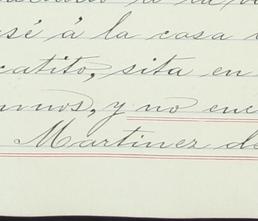 sé á la casa
catito, sita en
mnos, y no enc
Martinez de